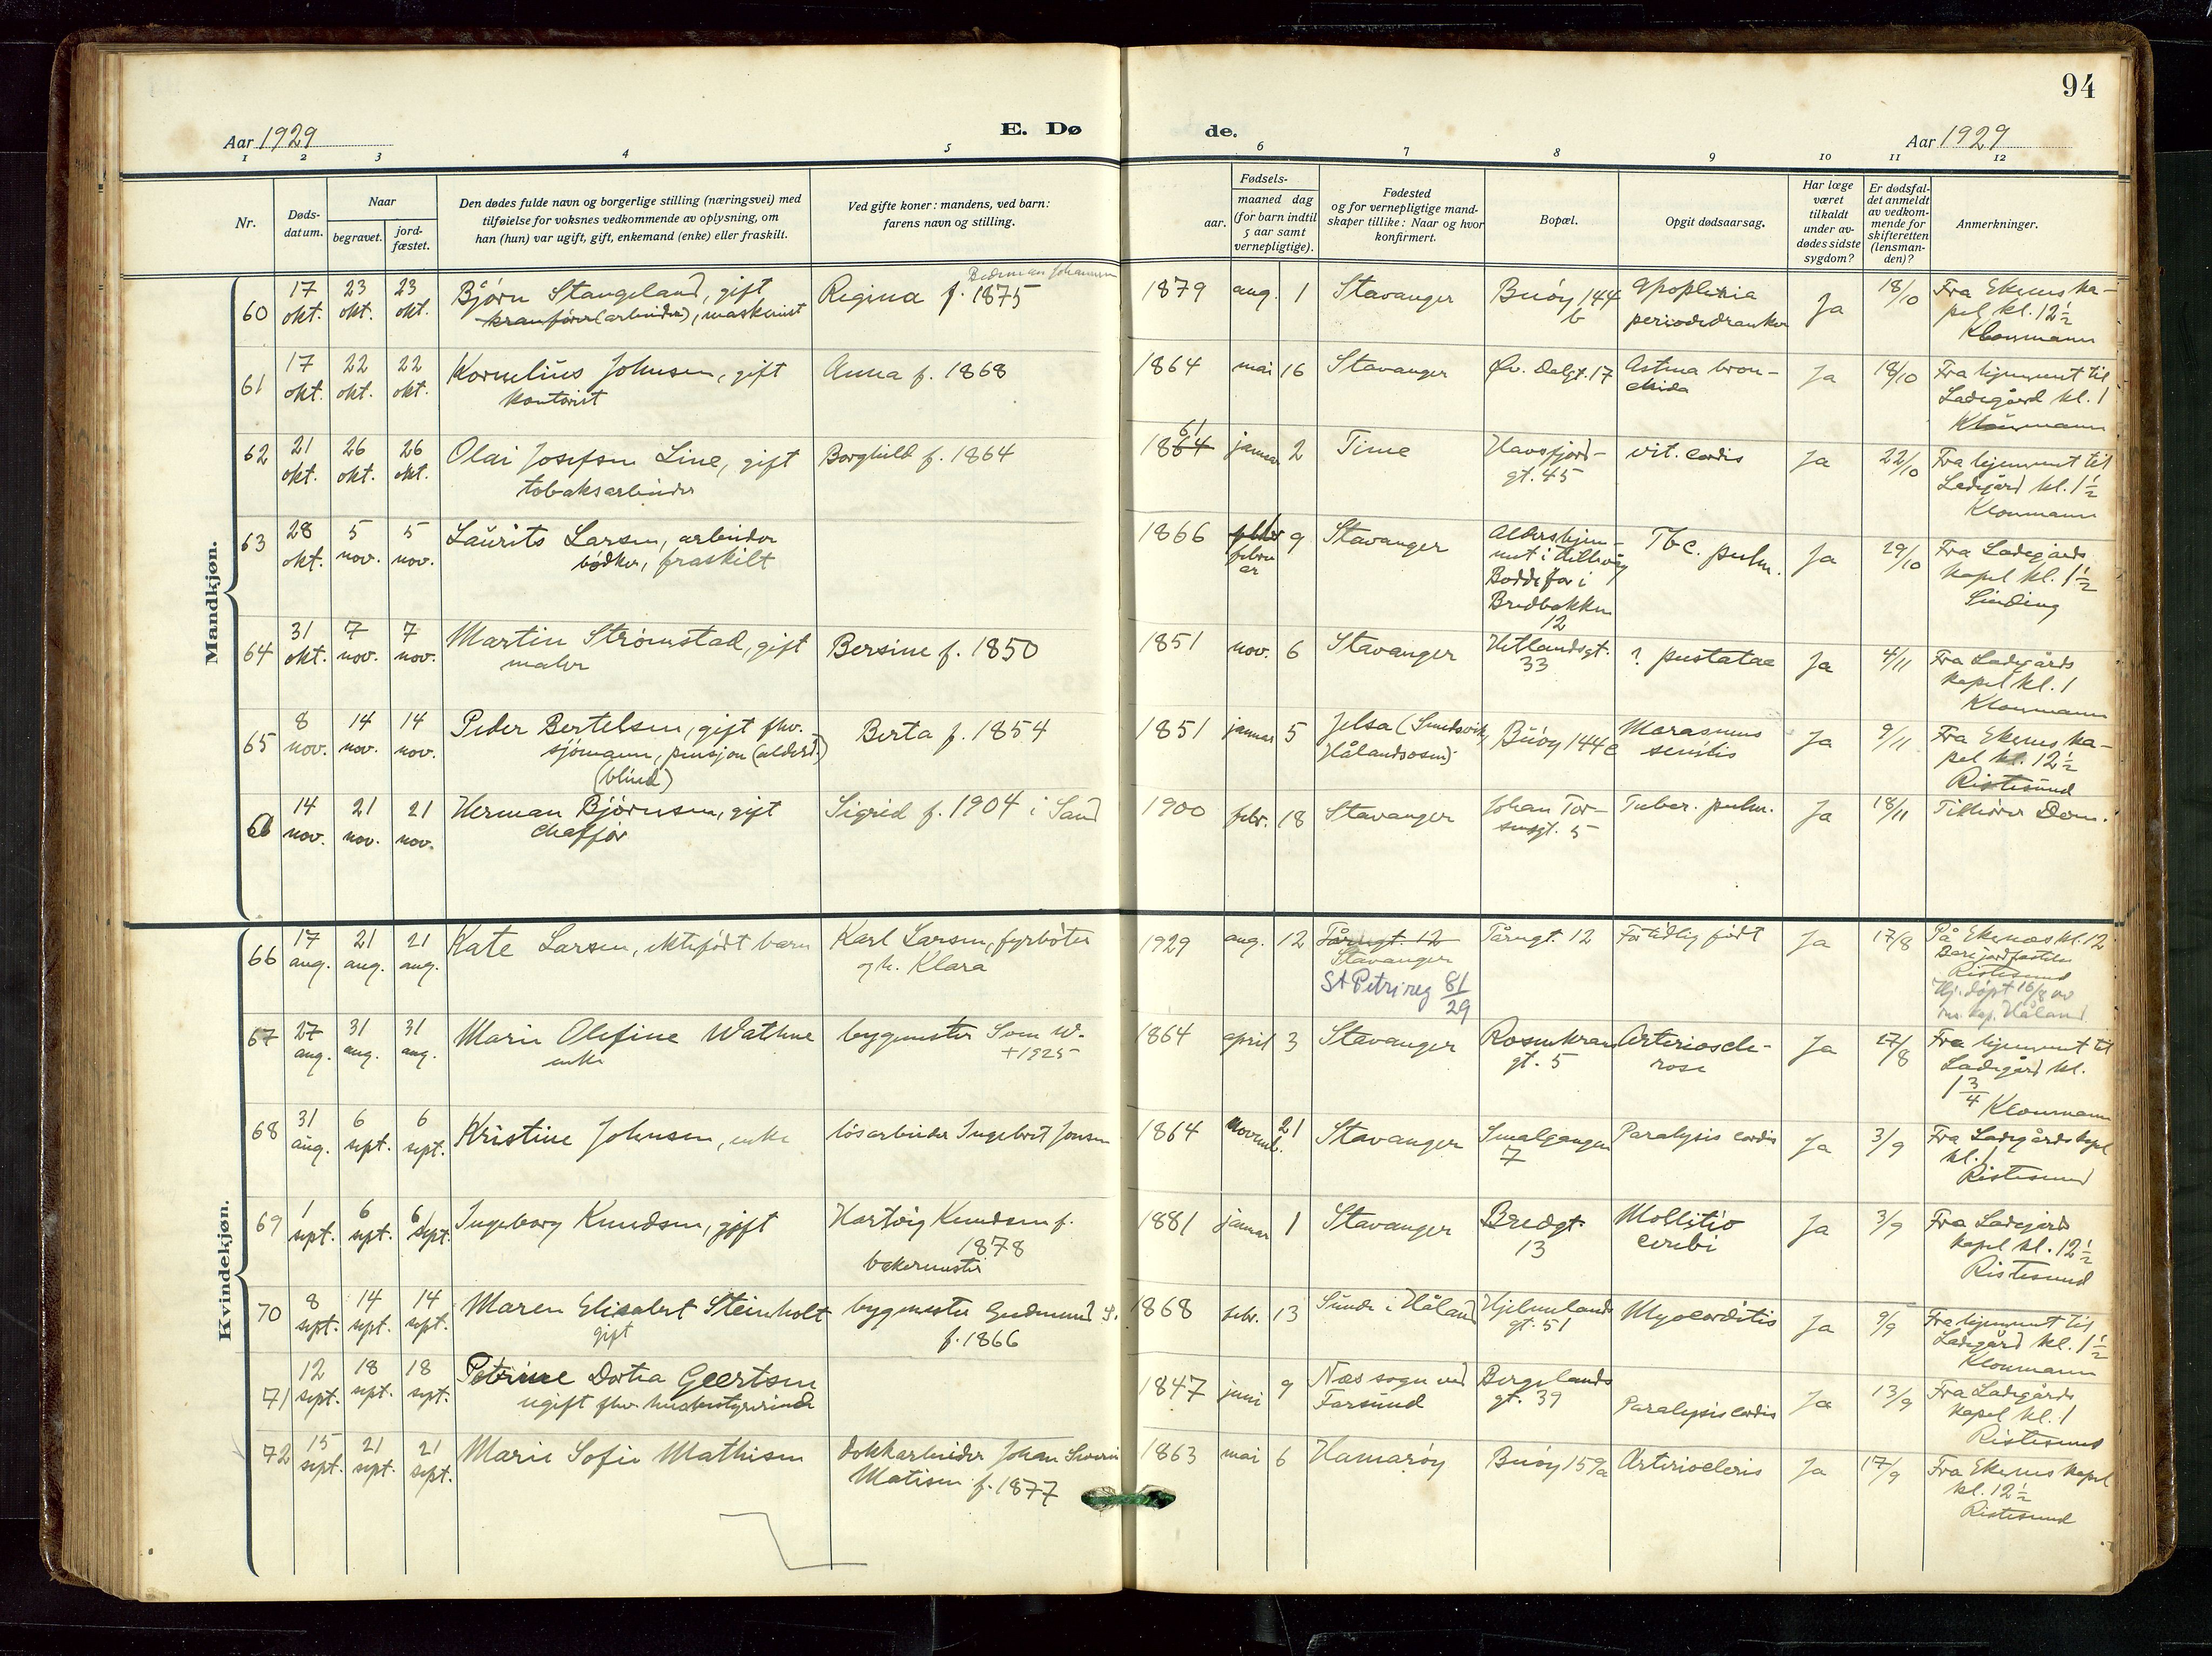 94
Aar 1929
E. Dø
de.
Aar 1929
1 2 3 4 5 6 7 8 9 10 11 12
Nr.
Døds-
datum.
Naar
begravet.
jord-
fæstet.
Den dødes fulde navn og borgerlige stilling (næringsvei) med
tilføielse for voksnes vedkommende av oplysning, om
han (hun) var ugift, gift, enkemand (enke) eller fraskilt.
Ved gifte koner: mandens, ved barn:
farens navn og stilling.
Fødsels-
aar.
maaned dag
(for barn indtil
5 aar samt
vernepligtige).
Fødested
og for vernepligtige mand-
skaper tillike: Naar og hvor
konfirmert.
Bopæl.
Opgit dødsaarsag.
Har læge
været
tilkaldt
under av-
dødes sidste
sygdom?
Er dødsfal-
det anmeldt
av vedkom-
mende for
skifteretten
(lensman-
den)?
Anmerkninger.
Mandkjøn.
60 17 okt. 23 okt. 23 okt. Bjørn Stangeland, gift
kranfører (arbeider), maskinist
Regina f. 1875
1879 aug. 1 Stavanger Buøy 144 b
apoplexia
periodedranker
Ja 18/10 Fra Ekenes ka-
pel kl. 12½
Klonmann
61 17 okt. 22 okt. 22 okt. Kornelius Johnsen, gift
kontorist
Anna f. 1868
1864 mai 16 Stavanger Øv. Dalgt. 17 Astma bron-
Ja 18/10 Fra hjemmet til
Ladegård kl. 1
Klonmann
62 21 okt. 26 okt. 26 okt. Olai Josefsen Line, gift
tobaksarbeider
Borghild f. 1864
1864 61 januar 2 Time Havsfjord-
gt. 45
vit. cordis Ja 22/10 Fra hjemmet til
Ladegård kl. 1½
Klonmann
63 28 okt. 5 nov. 5 nov. Laurits Larsen, arbeider
bødker, fraskilt
1866 februar 9 Stavanger Aldershjem-
met i Hillevåg
Bodde før i
Bredbakken
12
Tbc. pulm. Ja 29/10 Fra Ladegårds
kapel kl. 1½
Sinding
64 31 okt. 7 nov. 7 nov. Martin Strømstad, gift
maler
Bersine f. 1850
1851 nov. 6 Stavanger Hetlandsgt.
33
Ja 4/11 Fra Ladegårds
kapel kl. 1
Klonmann
65 8 nov. 14 nov. 14 nov. Peder Bertelsen, gift fhv.
sjømann, pensjon (alderd.)
(blind)
Berta f. 1854
1851 januar 5 Jelsa (Sundsvik,
Hålandsosen)
Buøy 144c Marasmus
senilis
Ja 9/11 Fra Ekenes ka-
pel kl. 12½
Ristesund
66 14 nov. 21 nov. 21 nov. Herman Bjørnsen, gift
chaffør
Sigrid f. 1904 i Sand
1900 febr. 18 Stavanger Johan Tor-
sensgt. 5
Tuber. pulm. Ja 18/11 Tilhører Dom.
Kvindekjøn.
66 17 aug. 21 aug. 21 aug. Kate Larsen, ektefødt barn
Karl Larsen, fyrbøter
og h. Klara
1929 aug. 12 Tårngt. 12
Stavanger
St Petri reg 81/29
Tårngt. 12 For tidlig født Ja 17/8 På Ekenæs kl. 12
Bare jordfæstelse
Ristesund
Hj. døpt 16/8 av
res. kap. Håland
67 27 aug. 31 aug. 31 aug. Marie Olefine Wathne
enke
bygmester Som W.
+1925
1864 april 3 Stavanger Rosenkrans
gt. 5
Arteriosele-
rose
Ja 27/8 Fra hjemmet til
Ladegård kl.
1¾ Klonmann
68 31 aug. 6 sept. 6 sept. Kristine Johnsen, enke
løsarbeider Ingebret Jonsen
1864 novemb. 21 Stavanger Smalgangen
7
Paralysis cordis Ja 3/9 Fra Ladegårds kapel
kl. 1
Ristesund
69 1 sept. 6 sept. 6 sept. Ingeborg Knudsen, gift
Hartvig Knudsen f.
1878
bakermester
1881 januar 1 Stavanger Bredgt.
13
Mollitio
cerebi
Ja 3/9 Fra Ladegårds
kapel kl. 12½
Ristesund
70 8 sept. 14 sept. 14 sept. Maren Elisabet Steinholt
gift
bygmester Gudmund S.
f. 1866
1868 febr. 13 Sunde i Håland Hjelmelands
gt. 51
Myocorditis Ja 9/9 Fra hjemmet til
Ladegård kl. 1½
Klonmann
71 12 sept. 18 sept. 18 sept. Petrine Dortea Geertsen
ugift fhv. husbestyrerinde
1847 juni 9 Næs sogn ved
Farsund
Bergelands
gt. 39
Paralysis cordis Ja 13/9 Fra Ladegårds
kapel kl. 1
Ristesund
72 15 sept. 21 sept. 21 sept. Marie Sofie Mathisen
dokkarbeider Johan Severin
Matisen f. 1877
1863 mai 6 Hamarøy Buøy 159a Ja 17/9 Fra Ekenes kapel
kl. 12½
Ristesund